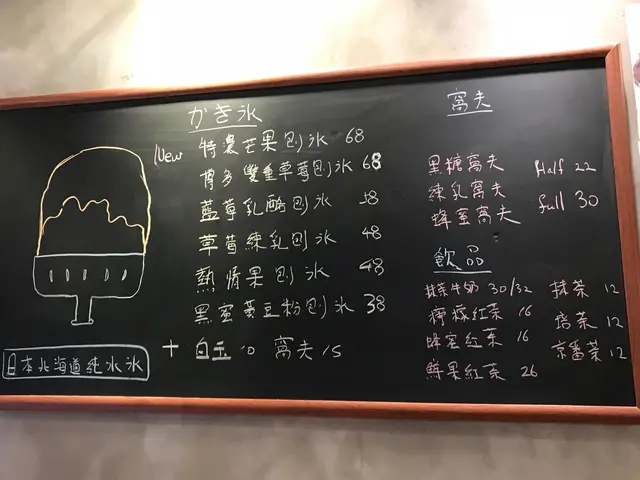 かき氷
New 特濃芒果刨氷 68
博多雙重草莓刨氷 68
藍莓乳酪刨氷 58
草莓練乳刨氷 48
熱情果刨氷 48
黑蜜黃豆粉刨氷 38
+ 白玉 10 窩夫 15
日本北海道純水氷
窩夫
黑糖窩夫 Half 22
練乳窩夫 full 30
蜂蜜窩夫
飲品
抹茶牛奶 30/32
檸檬紅茶 16
蜂蜜紅茶 16
鮮果紅茶 26
抹茶 12
焙茶 12
京番茶 12